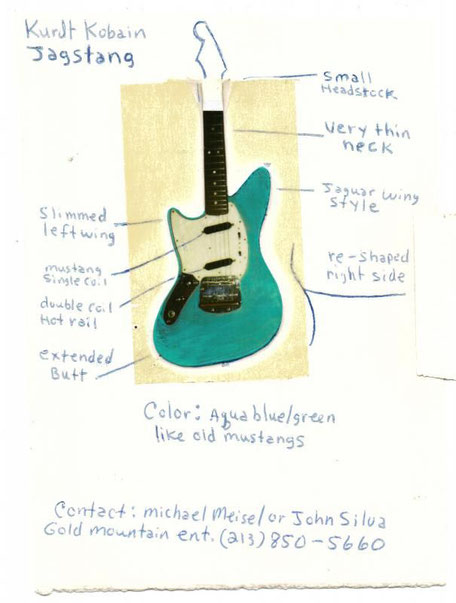 Kurdt Kobain
Jagstang
Small
Headstock
Very thin
neck
Jaguar wing
style
Slimmed
left wing
mustang
single coil
double coil
Hot rail
re-shaped
right side
extended
Butt
Color: Aqua blue/green
like old mustangs
Contact: michael Meisel/or John Silva
Gold mountain ent. (213) 850-5660